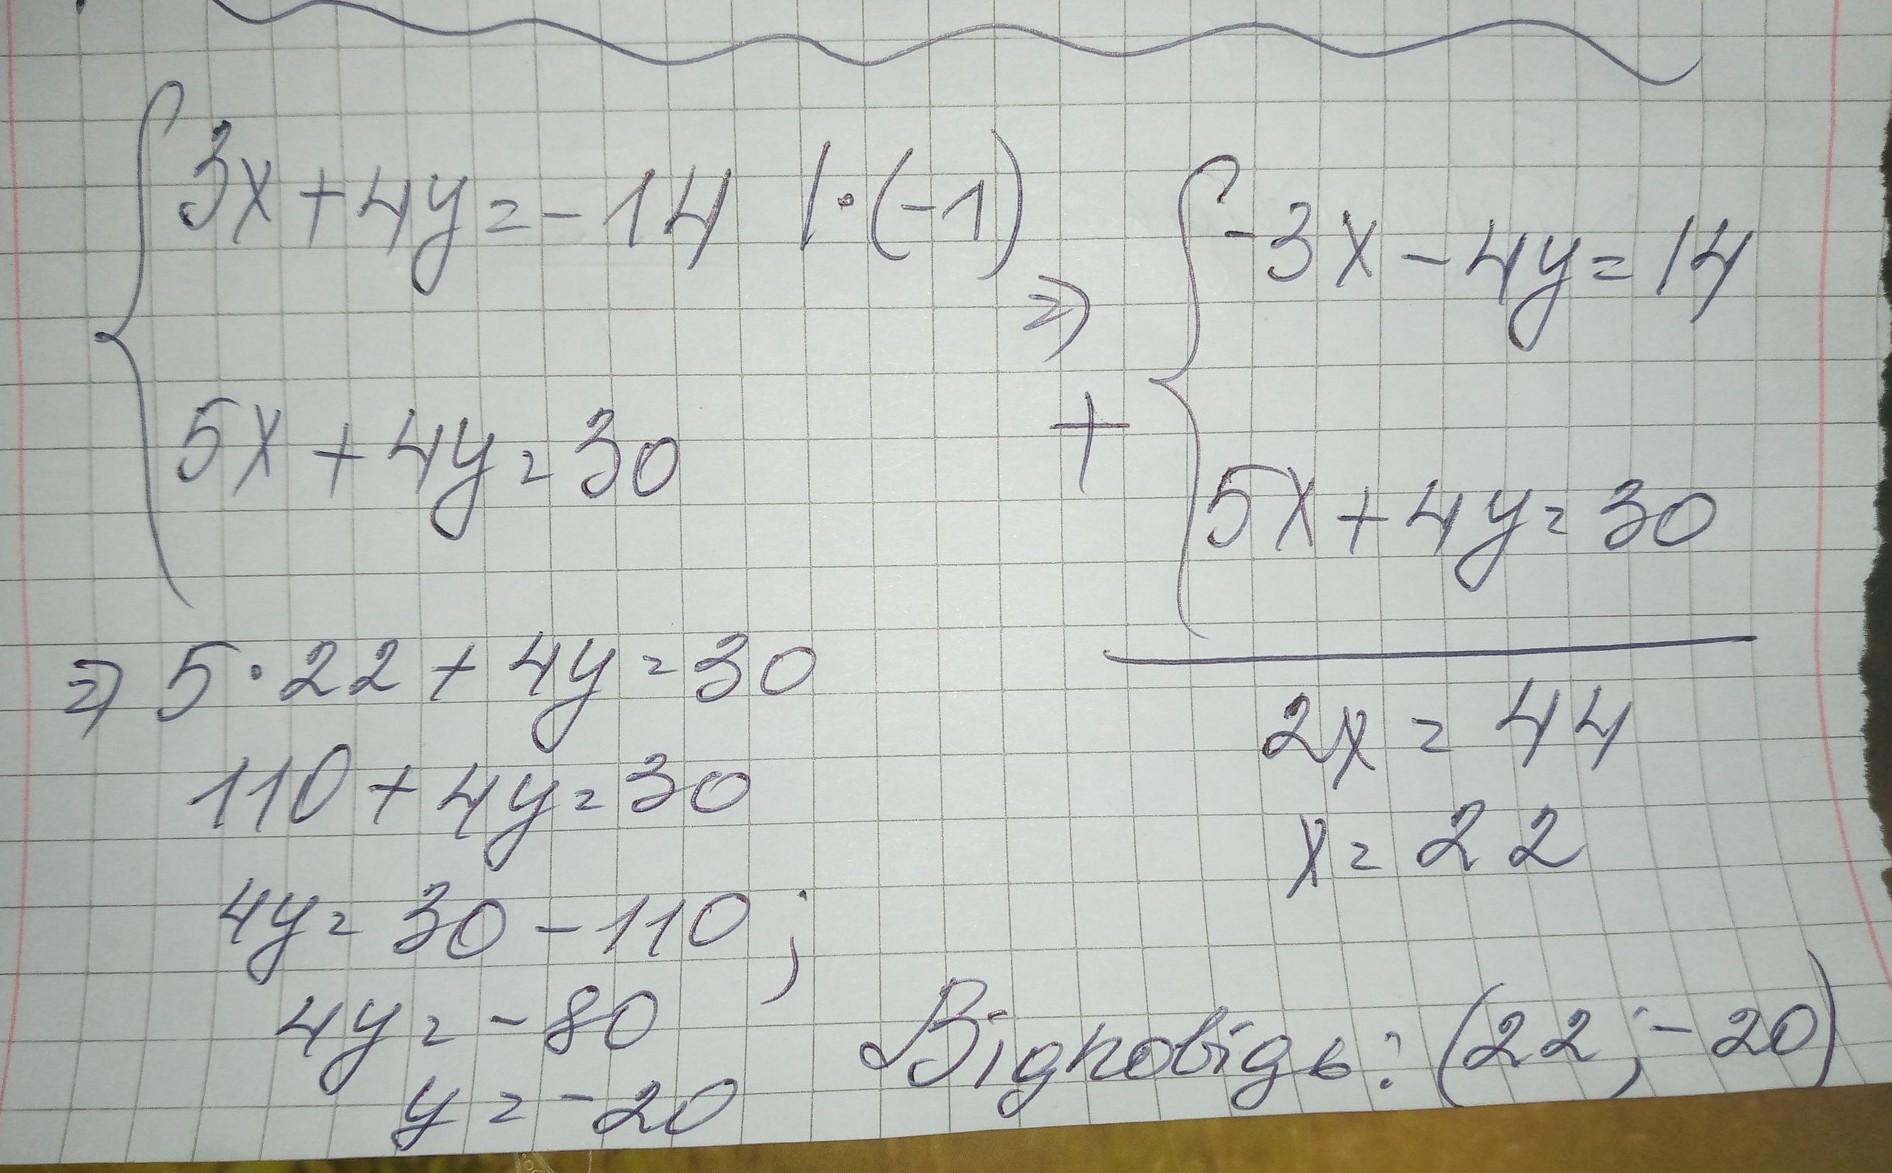 3x+4y=-14 |·(-1)
⇒
5x+4y=30
+
-3x-4y=14
5x+4y=30
2x=44
x=22
⇒ 5·22+4y=30
110+4y=30
4y=30-110;
4y=-80
y=-20
Відповідь: (22;-20)